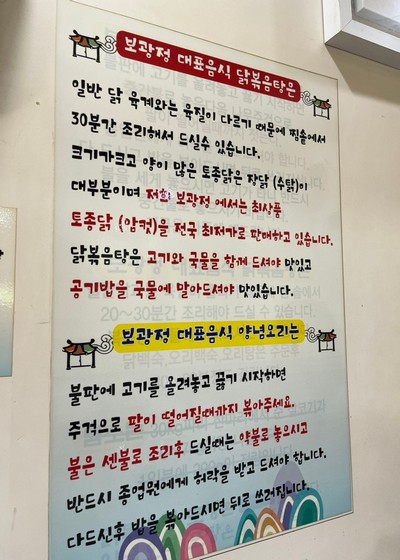 보광정 대표음식 닭볶음탕은
일반 닭 육계와는 육질이 다르기 때문에 찜솥에서
30분간 조리해서 드실수 있습니다.
크기가크고 양이 많은 토종닭은 장닭 (수탉)이
대부분이며 저희 보광정 에서는 최상품
토종닭 (암컷)을 전국 최저가로 판매하고 있습니다.
닭볶음탕은 고기와 국물을 함께 드셔야 맛있고
공기밥을 국물에 말아드셔야 맛있습니다.
보광정 대표음식 양념오리는
불판에 고기를 올려놓고 끓기 시작하면
주걱으로 팔이 떨어질때까지 볶아주세요.
불은 센불로 조리후 드실때는 약불로 놓으시고
반드시 종업원에게 허락을 받고 드셔야 합니다.
다드신후 밥을 볶아드시면 뒤로 쓰러집니다.